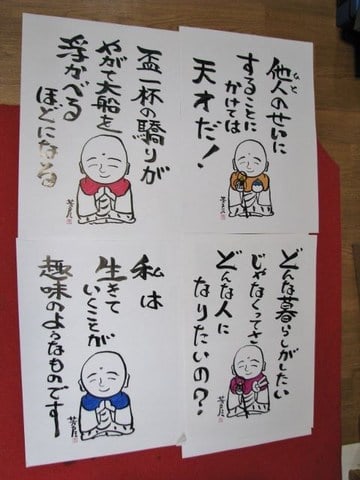 盃一杯の驕りが
やがて大船を
浮かべる
ほどになる
他人のせいに
ひと
することに
かけては
天才だ!
私は
生きて
いくことが
趣味のようなものです
どんな暮らしがしたい
じゃなくってさ
どんな人に
なりたいの?